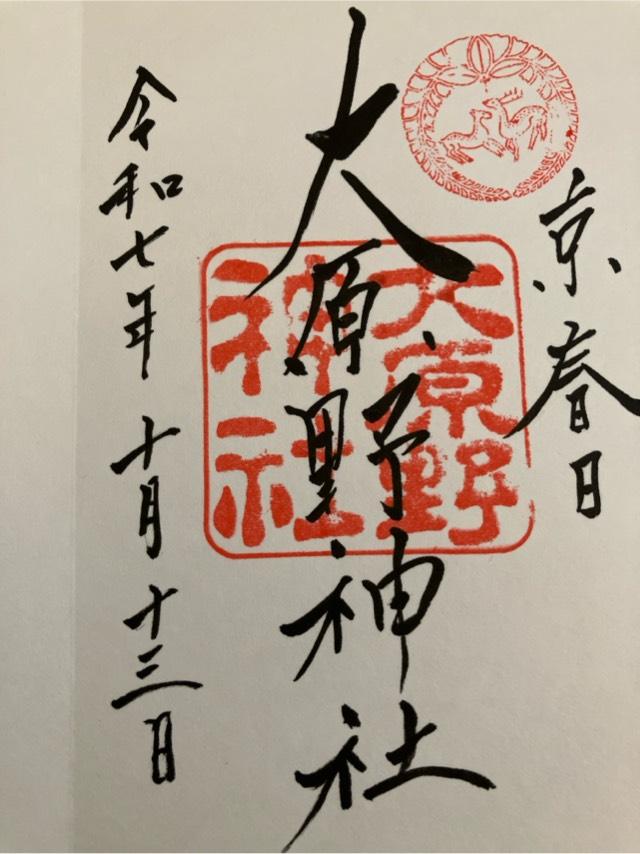 京春日
大原野神社
大原野神社
令和七年十月十三日